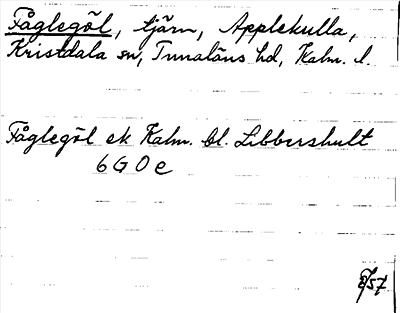 Fåglegöl, tjärn, Applekulla,
Kristdala sn, Tunaläns hd, Kalm. l.
Fåglegöl ek Kalm. bl. Libbershult
6 G O e
/57